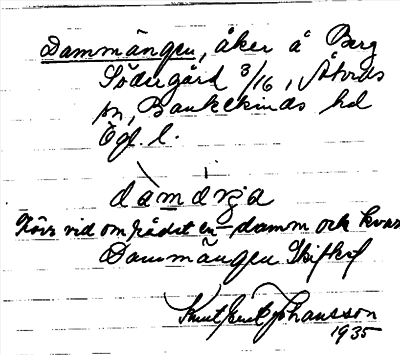 Dammängen, åker å Berg
Södergård 3/16, Åtvids
sn, Bankekinds hd
Ögl. l.
damäηa
Förr vid området en damm och kvarn
Dammängen Skifksf
Knut Erik Johansson
1935